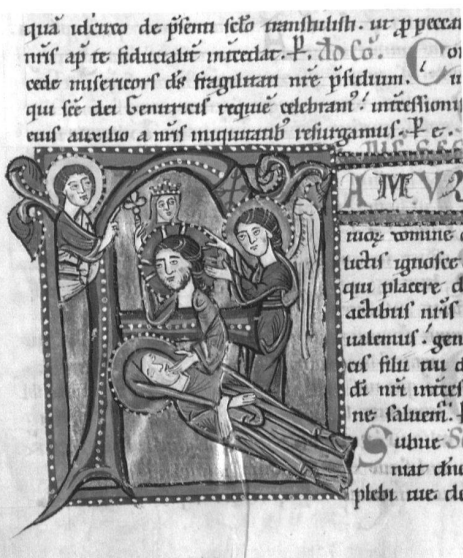 quā idcirco de p̄senti sc̄lo transtulisti. ut p̄ pecca
nr̄is ap̄ te fiducialit̄ int̄cedat. P. Ad Cō. Co
cede misericors ds̄ fragilitati nr̄e p̄sidium.
qui sc̄e dei Genitricis requiē celebram᾽. int̄cessioni
eius auxilio a nr̄is iniquitatib᾽ resurgamus. P e.
AMVR
domine
lictis ignosce
qui placere d
actibus nr̄is
ualemus. gen
cis filii tui d
di nr̄i int̄ces
ne saluem̄.
Subue
niat dn̄e
plebi tue de